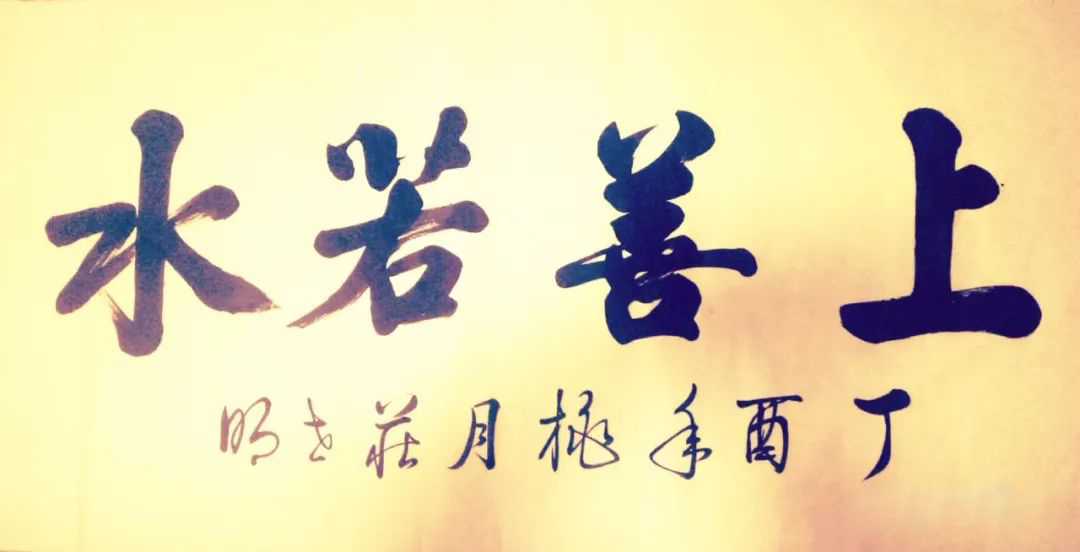 上善若水
丁酉年桃月莊世明